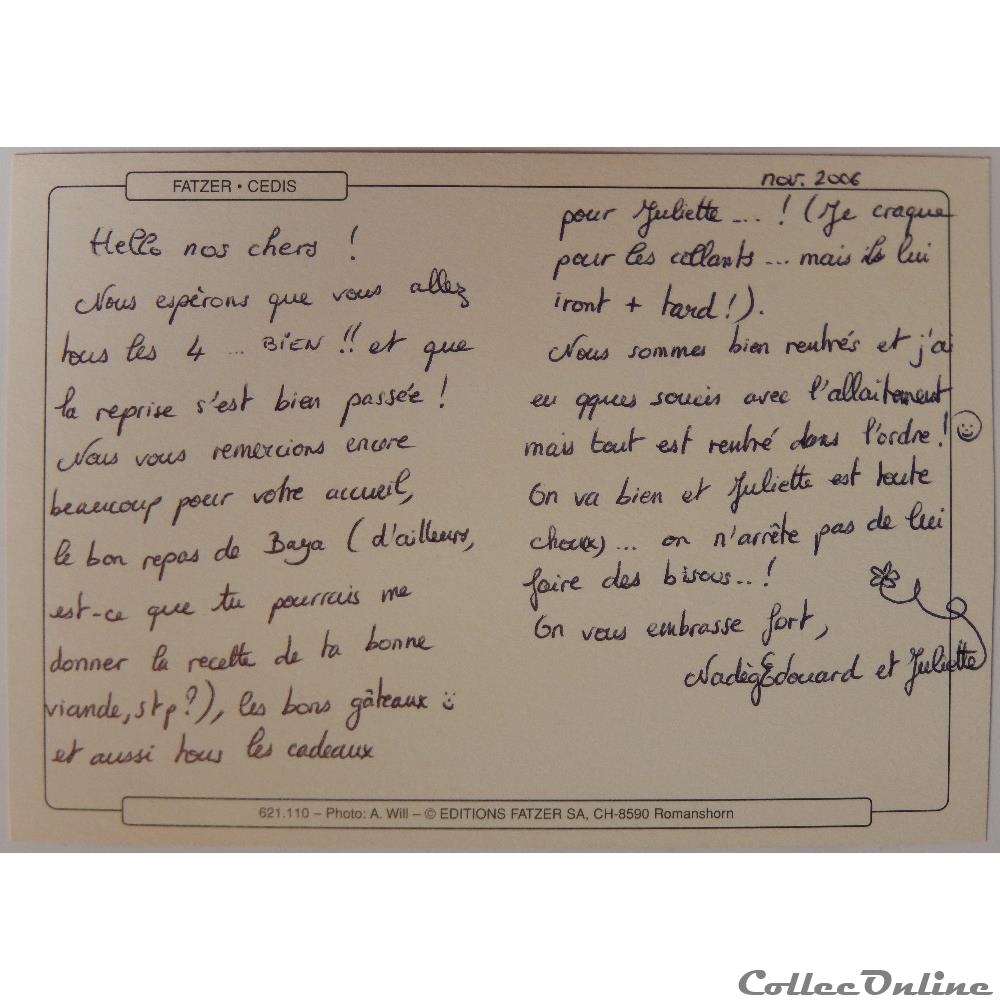 FATZER • CEDIS
Hello nos chers !
Nous espérons que vous allez
tous les 4 ... BIEN !! et que
la reprise s'est bien passée !
Nous vous remercions encore
beaucoup pour votre accueil,
le bon repas de Baya (d'ailleurs,
est-ce que tu pourrais me
donner la recette de ta bonne
viande, stp ?), les bons gâteaux
et aussi tous les cadeaux
nov. 2006
pour Juliette ... ! (Je craque
pour les collants ... mais ils lui
iront + tard !).
Nous sommes bien rentrés et j'ai
eu qques soucis avec l'allaitement
mais tout est rentré dans l'ordre !
On va bien et Juliette est toute
choux) ... on n'arrête pas de lui
faire des bisous ... !
On vous embrasse fort,
NadègEdouard et Juliette
621.110 – Photo: A. Will – © EDITIONS FATZER SA, CH-8590 Romanshorn
CollecOnline